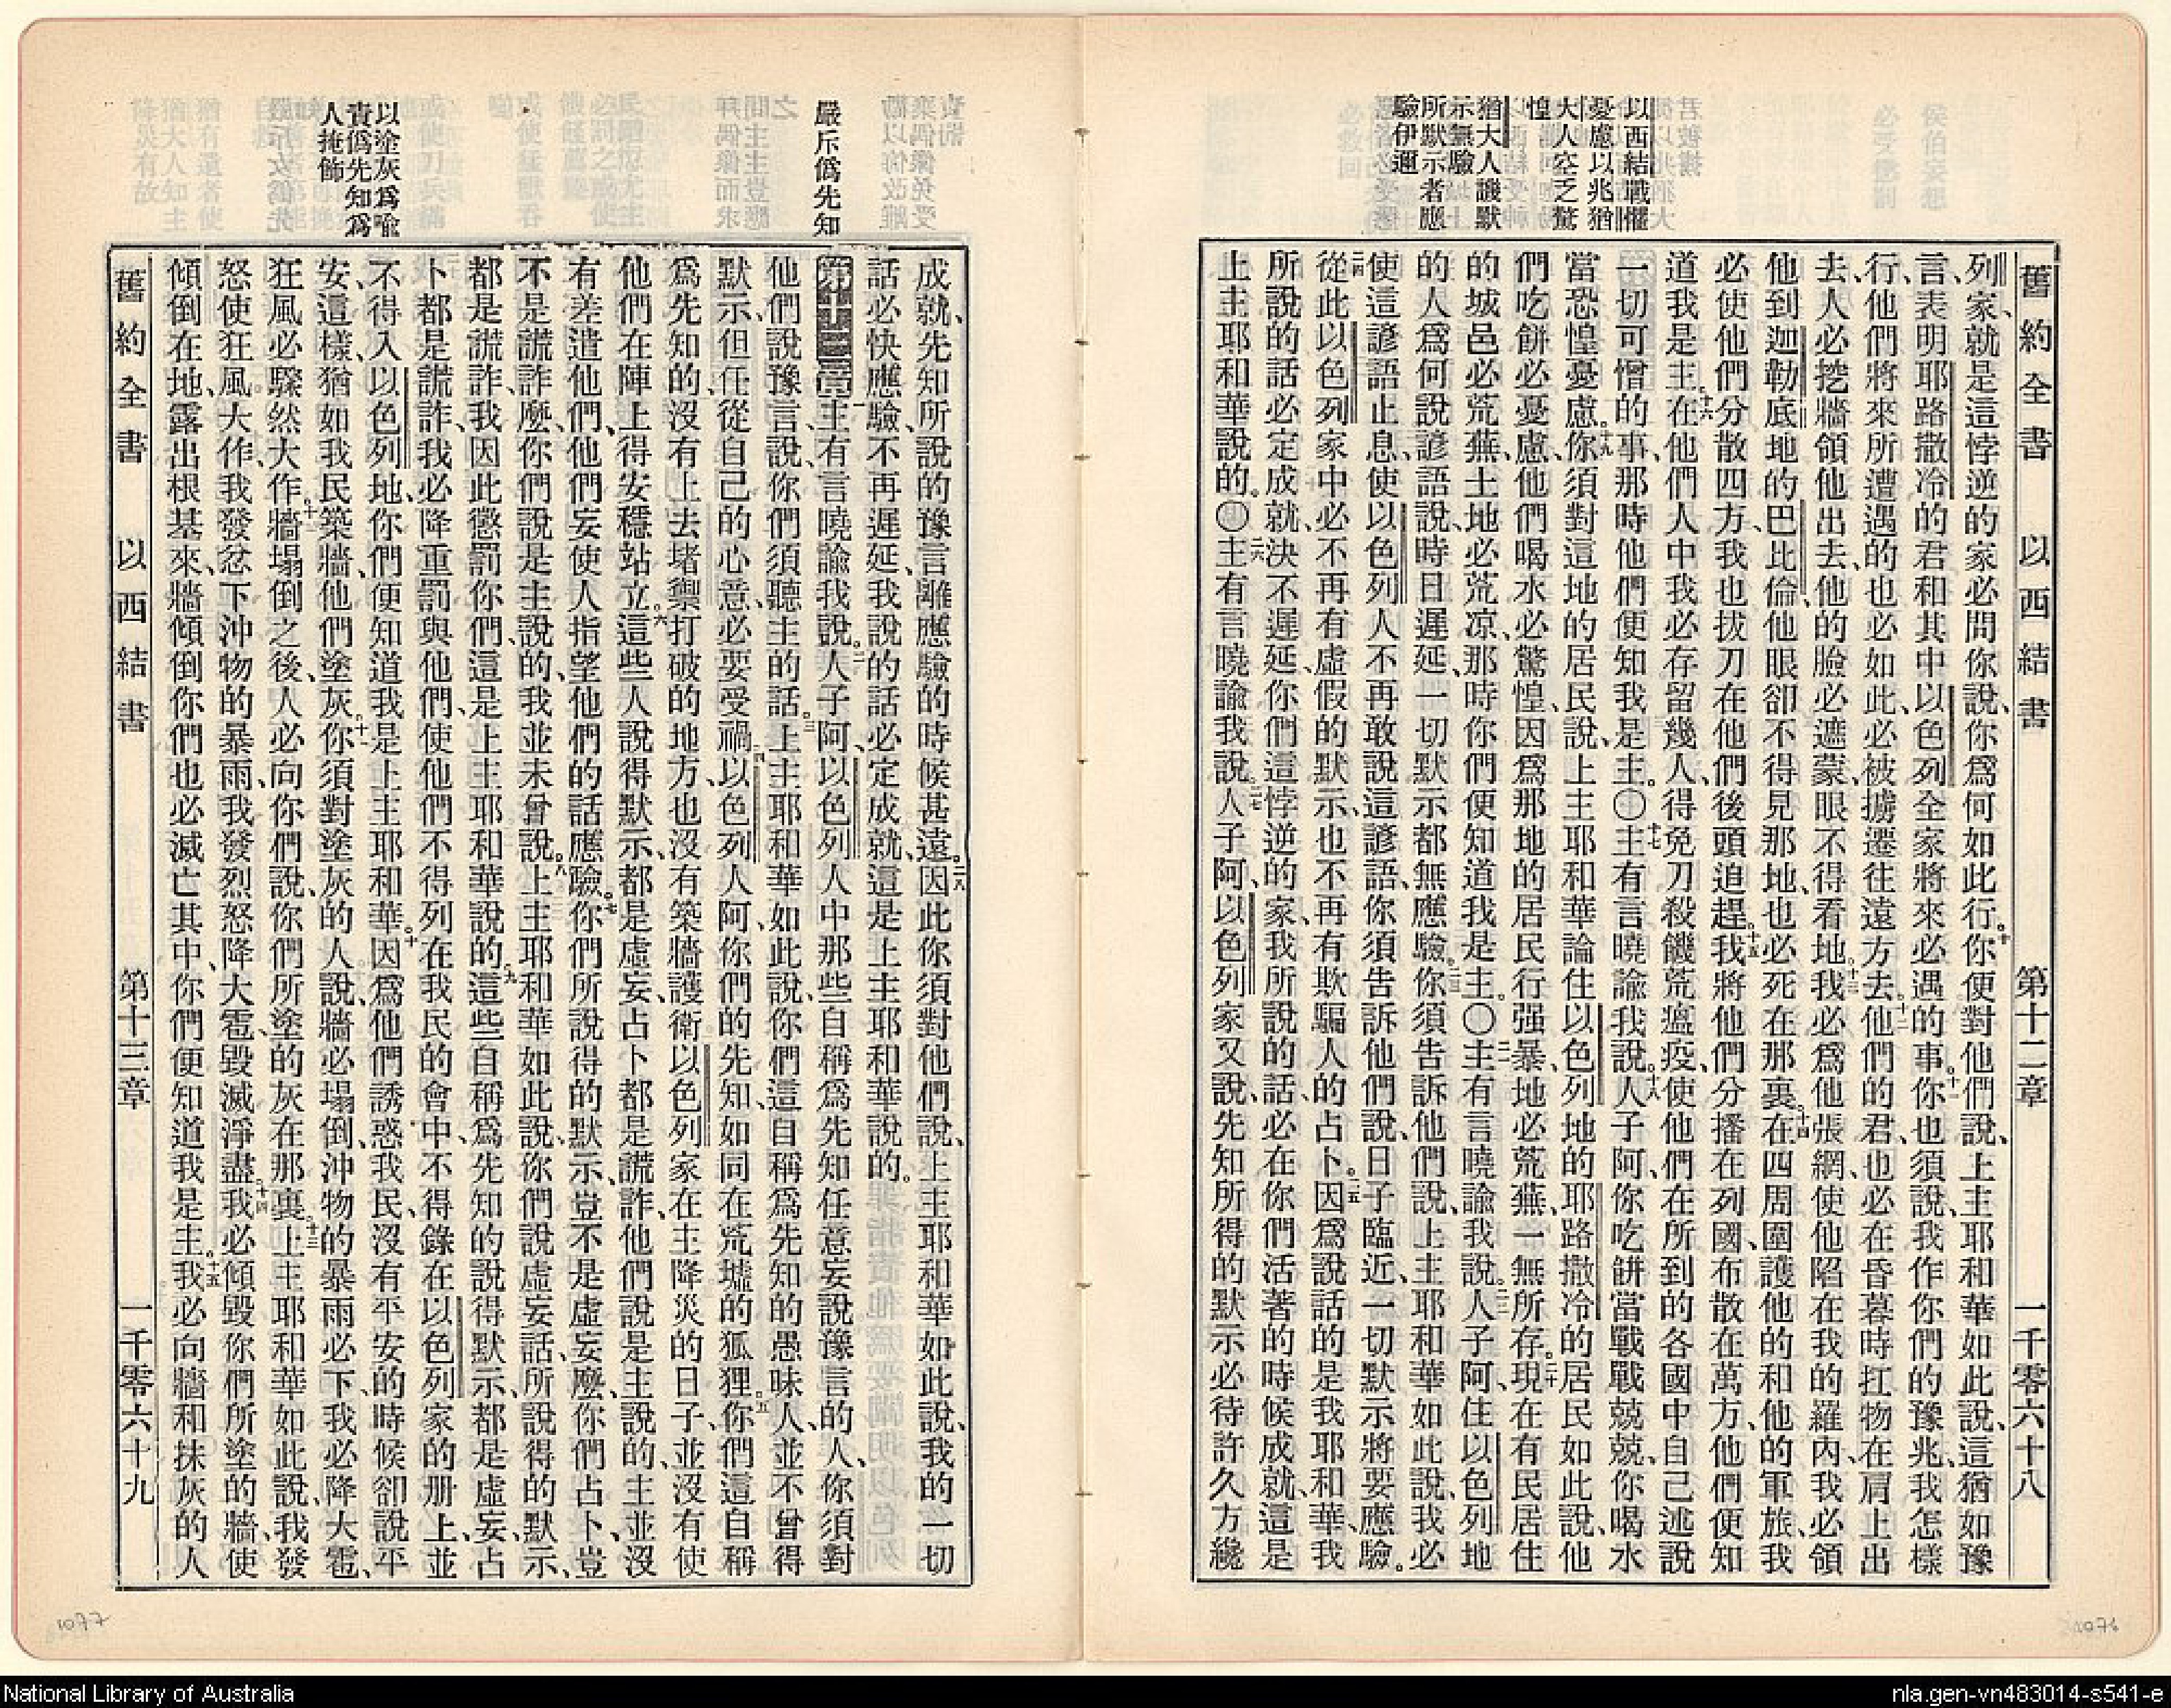 舊約全書　以西結書　第十二章　一千零六十八
以西結戰懼
憂慮以兆猶
大人空乏驚
惶
猶大人譏默
示無驗
所默示者應
驗伊邇
列家就是這悖逆的家必問你說、你爲何如此行。十你便對他們說、上主耶和華如此說、這猶如豫
言、表明耶路撒冷的君和其中以色列全家將來必遇的事。十一你也須說、我作你們的豫兆、我怎樣
行、他們將來所遭遇的也必如此、必被擄遷往遠方去。十二他們的君、也必在昏暮時扛物在肩上出
去、人必挖牆領他出去、他的臉必遮蒙、眼不得看地。十三我必爲他張網、使他陷在我的羅內、我必領
他到迦勒底地的巴比倫、他眼卻不得見那地、也必死在那裏。十四在四周圍護他的和他的軍旅、我
必使他們分散四方、我也拔刀在他們後頭追趕。十五我將他們分播在列國、布散在萬方、他們便知
道我是主。十六在他們人中我必存留幾人、得免刀殺饑荒瘟疫、使他們在所到的各國中自己述說
一切可憎的事、那時他們便知我是主。〇十七主有言曉諭我說、十八人子阿、你吃餅當戰戰兢兢、你喝水
當恐惶憂慮。十九你須對這地的居民說、上主耶和華論住以色列地的耶路撒冷的居民如此說、他
們吃餅必憂慮、他們喝水必驚惶、因爲那地的居民行强暴、地必荒蕪一無所存。二十現在有民居住
的城邑必荒蕪、土地必荒凉、那時你們便知道我是主。〇二一主有言曉諭我說、二二人子阿、住以色列地
的人爲何說諺語說、時日遲延、一切默示都無應驗。二三你須告訴他們說、上主耶和華如此說、我必
使這諺語止息、使以色列人不再敢說這諺語、你須告訴他們說、日子臨近、一切默示將要應驗。
二四從此以色列家中必不再有虛假的默示、也不再有欺騙人的占卜。二五因爲說話的是我耶和華、我
所說的話必定成就、决不遲延、你們這悖逆的家、我所說的話、必在你們活著的時候成就、這是
上主耶和華說的。〇二六主有言曉諭我說、二七人子阿、以色列家又說、先知所得的默示必待許久方纔
嚴斥僞先知
以塗灰爲喻
責僞先知爲
人掩飾
成就、先知所說的豫言離應驗的時候甚遠。二八因此你須對他們說、上主耶和華如此說、我的一切
話必快應驗、不再遲延、我說的話必定成就、這是上主耶和華說的。
第十三章一主有言曉諭我說、二人子阿、以色列人中那些自稱爲先知任意妄說豫言的人、你須對
他們說豫言、說、你們須聽主的話。三上主耶和華如此說、你們這自稱爲先知的愚昧人、並不曾得
默示、但任從自己的心意、必要受禍。四以色列人阿、你們的先知、如同在荒墟的狐狸。五你們這自稱
爲先知的、沒有上去堵禦打破的地方、也沒有築牆護衛以色列家、在主降災的日子、並沒有使
他們在陣上得安穩站立。六這些人說得默示、都是虛妄、占卜都是謊詐、他們說是主說的、主並沒
有差遣他們、他們妄使人指望他們的話應驗。七你們所說得的默示、豈不是虛妄麼、你們占卜、豈
不是謊詐麼、你們說是主說的、我並未曾說。八上主耶和華如此說、你們說虛妄話、所說得的默示、
都是謊詐、我因此懲罰你們、這是上主耶和華說的。九這些自稱爲先知的說得默示、都是虛妄、占
卜都是謊詐、我必降重罰與他們、使他們不得列在我民的會中、不得錄在以色列家的册上、並
不得入以色列地、你們便知道我是上主耶和華。十因爲他們誘惑我民、沒有平安的時候卻說平
安、這樣、猶如我民築牆、他們塗灰。十一你須對塗灰的人說、牆必塌倒、沖物的暴雨必下、我必降大雹、
狂風必驟然大作。十二牆塌倒之後、人必向你們說、你們所塗的灰在那裏。十三上主耶和華如此說、我發
怒使狂風大作、我發忿下沖物的暴雨、我發烈怒降大雹、毀滅淨盡。十四我必傾毀你們所塗的牆、使
傾倒在地、露出根基來、牆傾倒、你們也必滅亡其中、你們便知道我是主。十五我必向牆和抹灰的人
舊約全書　以西結書　第十三章　一千零六十九
1077
1076
National Library of Australia
nla.gen-vn483014-s541-e